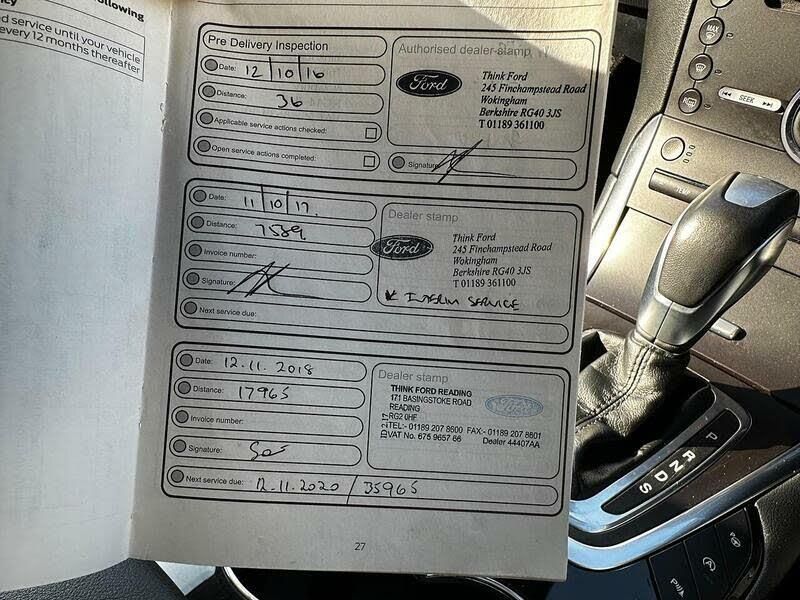 following
cy
d service until your vehicle
every 12 months thereafter
Pre Delivery Inspection
Date: 12/10/16
Distance: 36
Applicable service actions checked:
Open service actions completed:
Authorised dealer stamp
Ford
Think Ford
245 Finchampstead Road
Wokingham
Berkshire RG40 3JS
T 01189 361100
Signature
Date: 11/10/17.
Distance: 7589
Invoice number:
Signature:
Next service due:
Dealer stamp
Ford
Think Ford
245 Finchampstead Road
Wokingham
Berkshire RG40 3JS
T 01189 361100
INTERIM SERVICE
Date: 12.11.2018
Distance: 17965
Invoice number:
Signature:
Next service due: 12.11.2020 / 35965
Dealer stamp
THINK FORD READING
171 BASINGSTOKE ROAD
READING
RG2 0HF
TEL:- 01189 207 8600 FAX:- 01189 207 8801
VAT No. 675 9657 66 Dealer 44407AA
Ford
27
MAX
SEEK
P
R
N
D
S